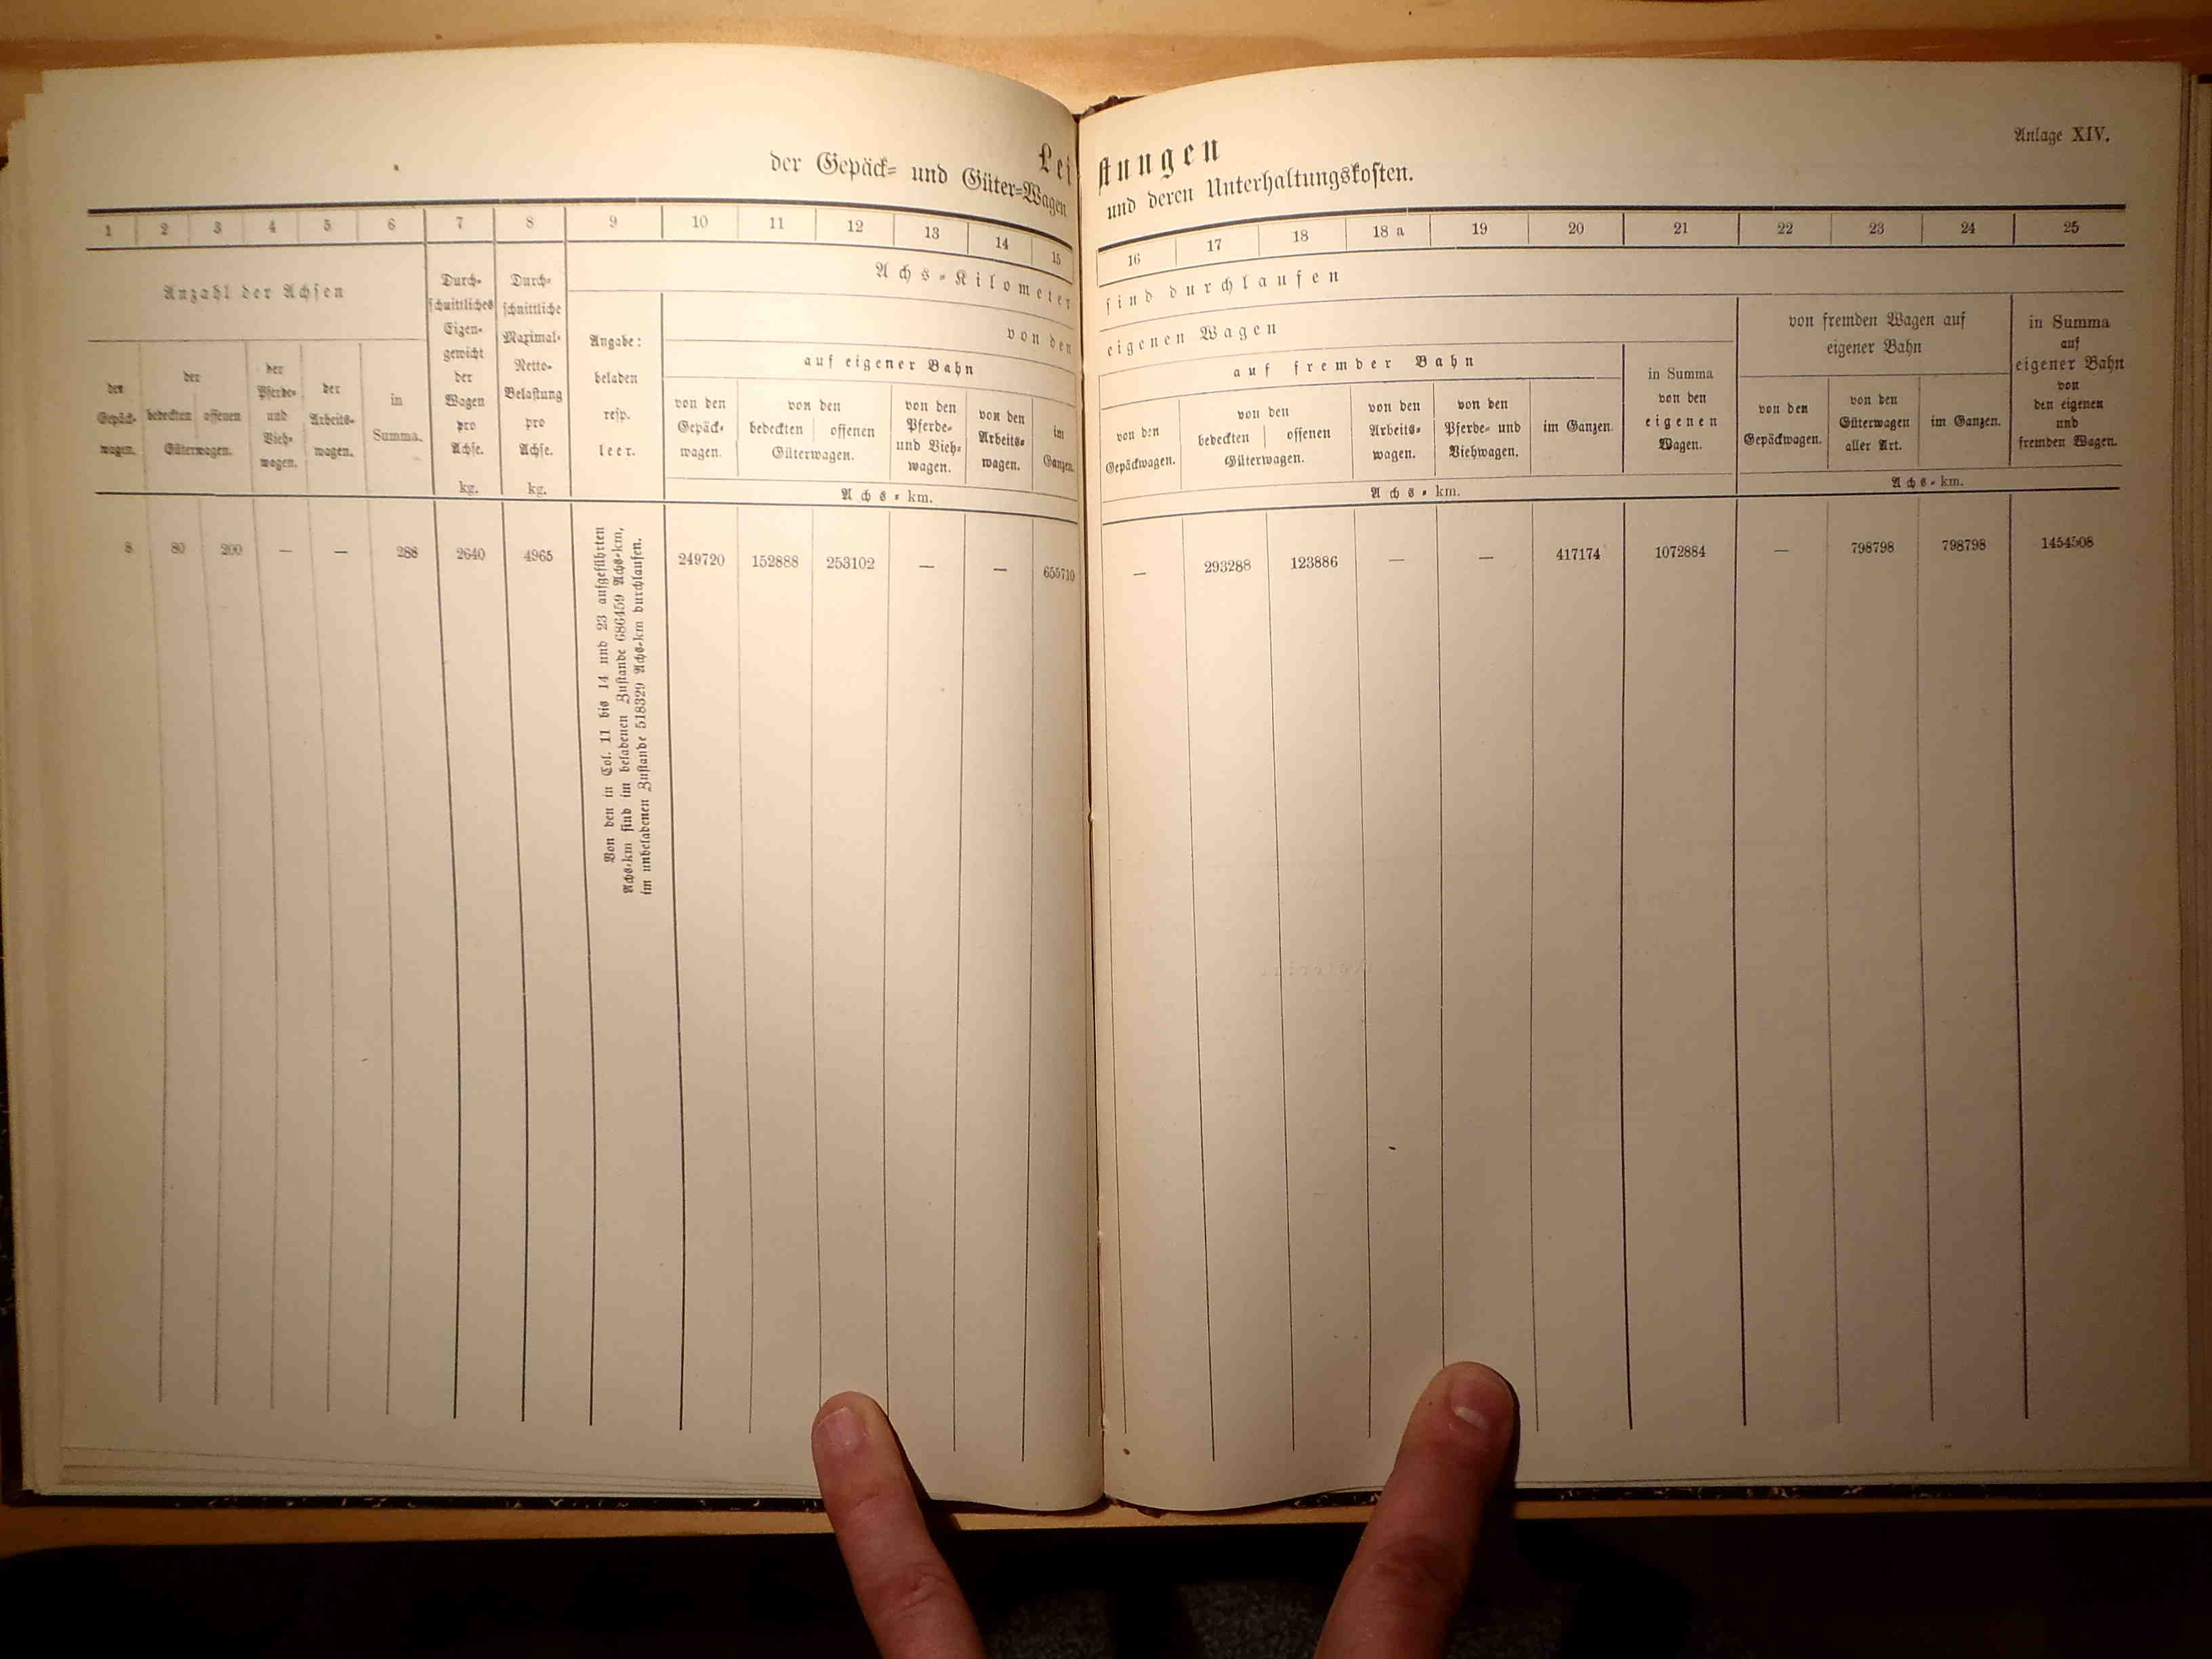 Anlage XIV.
Leistungen
der Gepäck- und Güter-Wagen und deren Unterhaltungskosten.
1 2 3 4 5 6 7 8 9 10 11 12 13 14 15 16 17 18 18 a 19 20 21 22 23 24 25
Anzahl der Achsen
der Gepäck-wagen.
der
bedeckten offenen
Güterwagen.
der Pferde- und Vieh-wagen.
der Arbeits-wagen.
in Summa.
Durch-schnittliches Eigen-gewicht der Wagen pro Achse.
kg.
Durch-schnittliche Maximal-Netto-Belastung pro Achse.
kg.
Achs-Kilometer sind durchlaufen
Angabe: beladen resp. leer.
von den eigenen Wagen
auf eigener Bahn
von den Gepäck-wagen.
von den
bedeckten offenen
Güterwagen.
von den Pferde- und Vieh-wagen.
von den Arbeits-wagen.
im Ganzen.
Achs-km.
auf fremder Bahn
von den Gepäckwagen.
von den
bedeckten offenen
Güterwagen.
von den Arbeits-wagen.
von den Pferde- und Viehwagen.
im Ganzen.
in Summa von den eigenen Wagen.
Achs-km.
von fremden Wagen auf eigener Bahn
von den Gepäckwagen.
von den Güterwagen aller Art.
im Ganzen.
in Summa auf eigener Bahn von den eigenen und fremden Wagen.
Achs-km.
8 80 200 — — 288 2640 4965
Von den in Col. 11 bis 14 und 23 aufgeführten
Achs-km sind im beladenen Zustande 686459 Achs-km,
im unbeladenen Zustande 518329 Achs-km durchlaufen.
249720 152888 253102 — — 655710 — 293288 123886 — — 417174 1072884 — 798798 798798 1454508